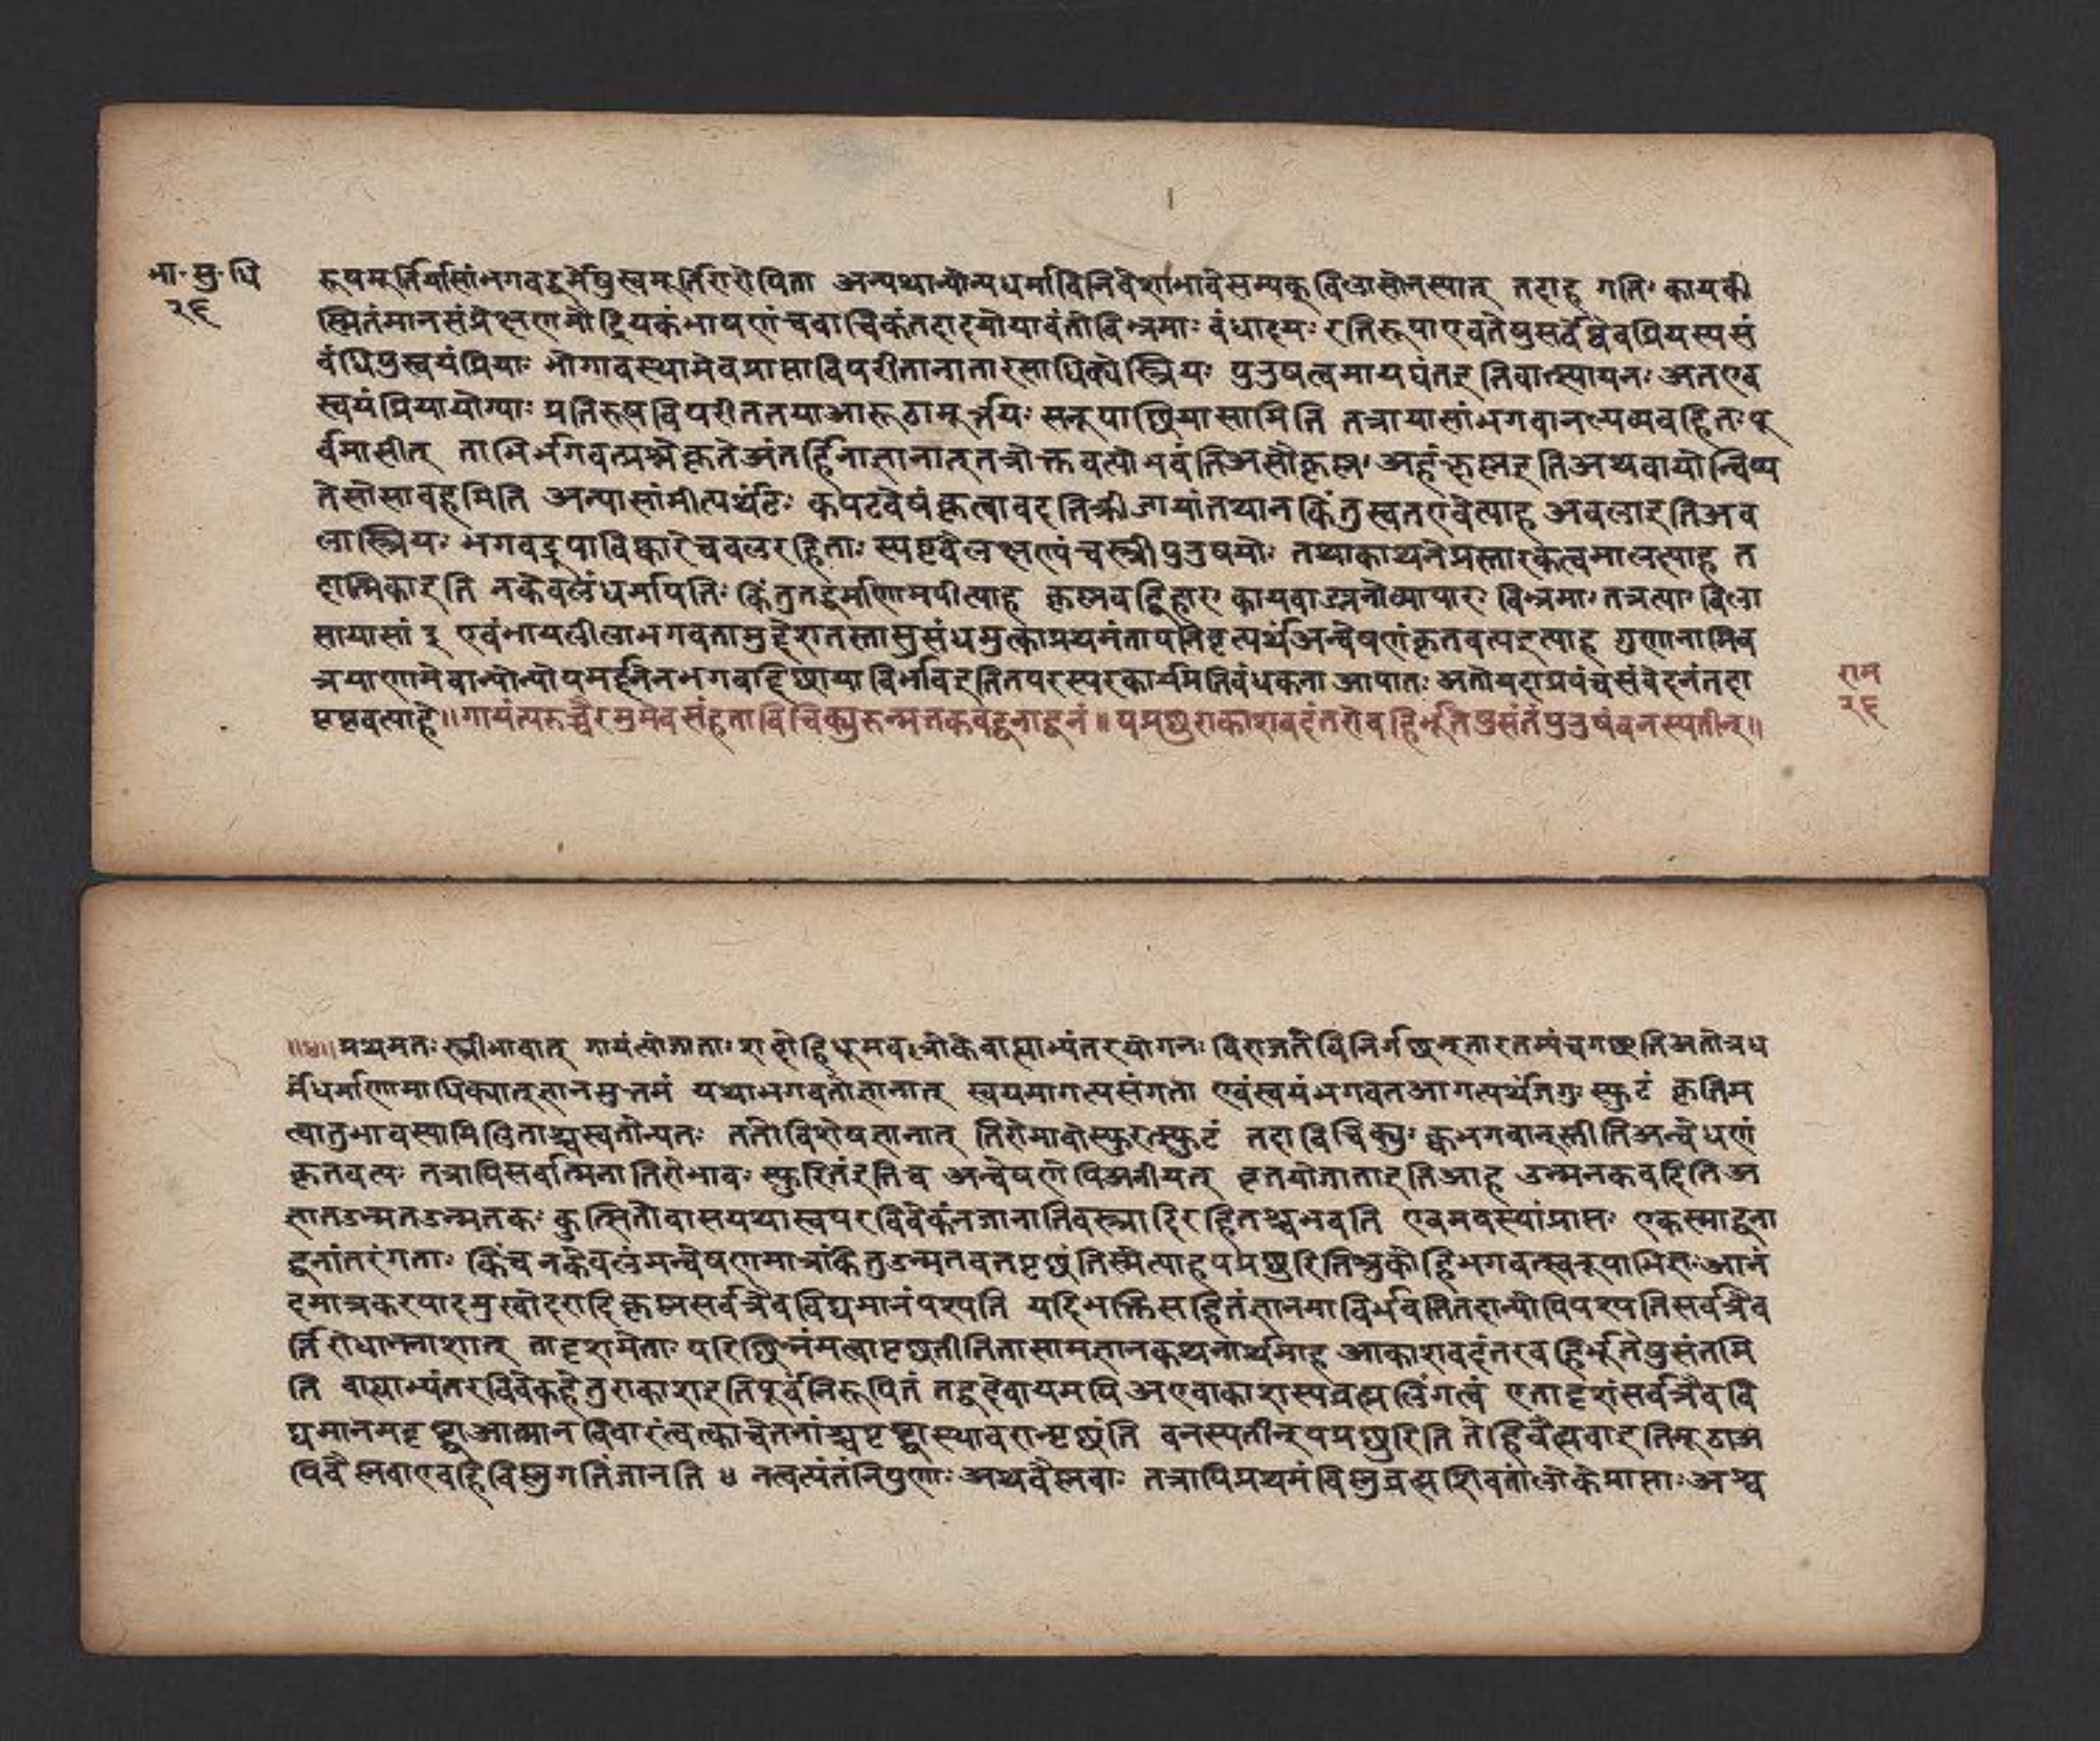 भा॰ सु॰ धि
२६
रूपमूर्तिर्यासांभगवद्रूपेषुस्वमूर्तिरारोपिता अन्यथान्योन्यधर्माविनिवेशाभावेसम्यक् विलासोनस्यात् तदाह गतिः कायकी
स्मितंमानसंप्रेक्षणमौद्रियकंभाषणंचवाचिकंतदादयोयावंतोविभ्रमाः बंधादयः रतिरूपाएवतेषुसर्वेष्वेवप्रियस्यसं
बंधिषुस्वयंप्रियाः भोगावस्थामेवप्राप्ताविपरीतानातारसाधिक्येस्त्रियः पुरुषत्वमायद्यंतइतिवात्स्यायनः अतएव
स्वयंप्रियायोग्याः प्रतिरूषविपरीततयाआरूढामूर्त्तयः सनूपाप्रियासामिति तत्रायासांभगवानल्पव्यवहितः पू
र्वमासीत् ताभिर्भगवत्प्रश्नेकृतेअंतर्हितोज्ञानात् तत्रोक्तवत्योभवंतिअसौकृष्णः अहंकृष्णइतिअथवायोन्विष्य
तेसोसावहमिति अन्यासांमीत्यर्थटिः कपटवेषंकृत्वावदतिक्रीडायांतथान किंतुस्वतएवेत्याह अबलाइतिअब
लास्त्रियः भगवद्रूपाविष्कारेचबलरहिताः स्पष्टवेलक्षण्यंचस्त्रीपुरुषयोः तथाकाथनेप्रस्तारकत्वमालत्याह त
दात्मिकाइति नकेवलंधर्मापतिः किंतुतद्धर्माणामपीत्याह कृष्णवद्विहारः कायवाङ्मनोव्यापारः विभ्रमाः तत्रत्याः विला
सायासां ३ एवंभायलीलाभगवतामुद्देशतस्तासुसंधमुत्काप्रथमंतापनिवृत्यर्थअन्वेषणंकृतवत्यइत्याह गुणानामिव
त्रयाणामेवान्योन्योपमर्द्दनेनभगवद्दिछाया विर्भावइतितपरस्परकार्यप्रतिबंधकता आपातः अतोयदाप्रपंचसंवेदनंतदा
पृष्टवत्याहे॥ गायंत्यरुच्चैरमुमेवसंहताविचिक्युरुन्मतकवद्वनाद्वनं॥ पप्रछुराकाशवदंतरोबहिर्भूतेषुसंतंपुरुषंवनस्पतीन्॥
राम
२६
॥४॥ प्रथमतः स्त्रीभावात् गायंत्योजाताः शब्दोहिधूमवल्लोकेबाह्याभ्यंतरयोगनः विराजतेविनिर्गछन्तारतम्यंचगछतिअतोत्रध
र्मधर्माणामाधिक्यात्ज्ञानमुत्तमं यथाभगवतोज्ञानात् स्वयमागत्यसंगता एवंस्वयंभगवतआगत्यर्थजगुः स्फुटं कृतिम
त्वातुभावस्यामिलिताश्चस्वतोन्यतः ततोविशेषज्ञानात् तिरोभावोस्फुरत्स्फुटं तदा विचिक्युः क्वभगवानस्तीतिअन्वेषणं
कृतवत्यः तत्रापिसर्वात्मिनातिरोभावः स्फुरितंइतिव अन्वेषणेपिअनीयत् वृतयोजाताइतिआह उन्मतकवदितिअ
ज्ञातउन्मतउन्मतकः कुत्सितोवासयथास्वपरविवेकंनजानातिवस्त्रादिरहितश्चभवति एवमवस्थांप्राप्तः एकस्माद्वना
द्वनांतरंगताः किंच नकेवलंमन्वेषणमात्रंकिंतुउन्मतवतपृछंतिस्मेत्याहपप्रछुरितिश्रुकोहिभगवत्स्वरूपाभिज्ञः आनं
दमात्रकरपादमुखोदरादिकृष्णसर्वत्रैवविद्यमानंपश्यति यदिभक्तिसहितंज्ञानमाविर्भवतितदान्योपिपश्यतिसर्वत्रैव
तिरोधाननाशात् तादृशमेताः परिछिन्नंमत्वापृछतीतितासामज्ञानकथनार्थमाह आकाशवदंतरबहिर्भूतेषुसंतमि
ति बाह्याभ्यंतरविवेकहेतुराकाशइतिपूर्वंनिरूपितं तद्वदेवायमपि अएवाकाशस्यब्रह्मलिंगत्वं एतादृशंसर्वत्रैववि
द्यमानमदृष्ट्वाआत्मानविचारंत्वत्काचेतनांश्चपृष्ट्वास्थावरान्पृछंति वनस्पतीन्पप्रछुरिति तेहिवैष्णवाइतिमूढाअ
पिवैष्णवाएवहिविष्णुगतिंजानति ४ नत्वत्यंतंनिपुणाः अथवैष्णवाः तत्रापिप्रथमंविष्णुब्रह्मशिवतांलोकेप्राप्ताः अश्व